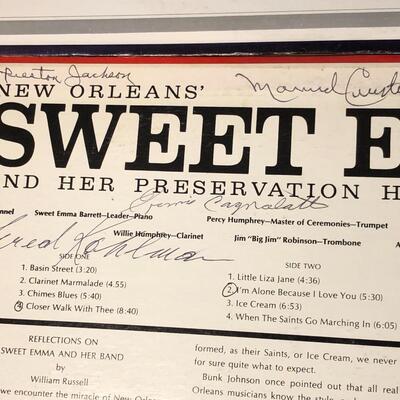 Preston Jackson
Manuel
NEW ORLEANS'
SWEET E
ND HER PRESERVATION H
Ernie Cagnolatti
nnel Sweet Emma Barrett—Leader—Piano Percy Humphrey—Master of Ceremonies—Trumpet
Willie Humphrey—Clarinet Jim "Big Jim" Robinson—Trombone A
Fred Kohlman
SIDE ONE
1. Basin Street (3:20)
2. Clarinet Marmalade (4:55)
3. Chimes Blues (5:40)
4. Closer Walk With Thee (8:40)
SIDE TWO
1. Little Liza Jane (4:36)
2. I'm Alone Because I Love You (5:30)
3. Ice Cream (6:53)
4. When The Saints Go Marching In (6:05)
REFLECTIONS ON
SWEET EMMA AND HER BAND
by
William Russell
we encounter the miracle of New Orle
formed, as their Saints, or Ice Cream, we never
for sure quite what to expect.
Bunk Johnson once pointed out that all real
Orleans musicians know the style